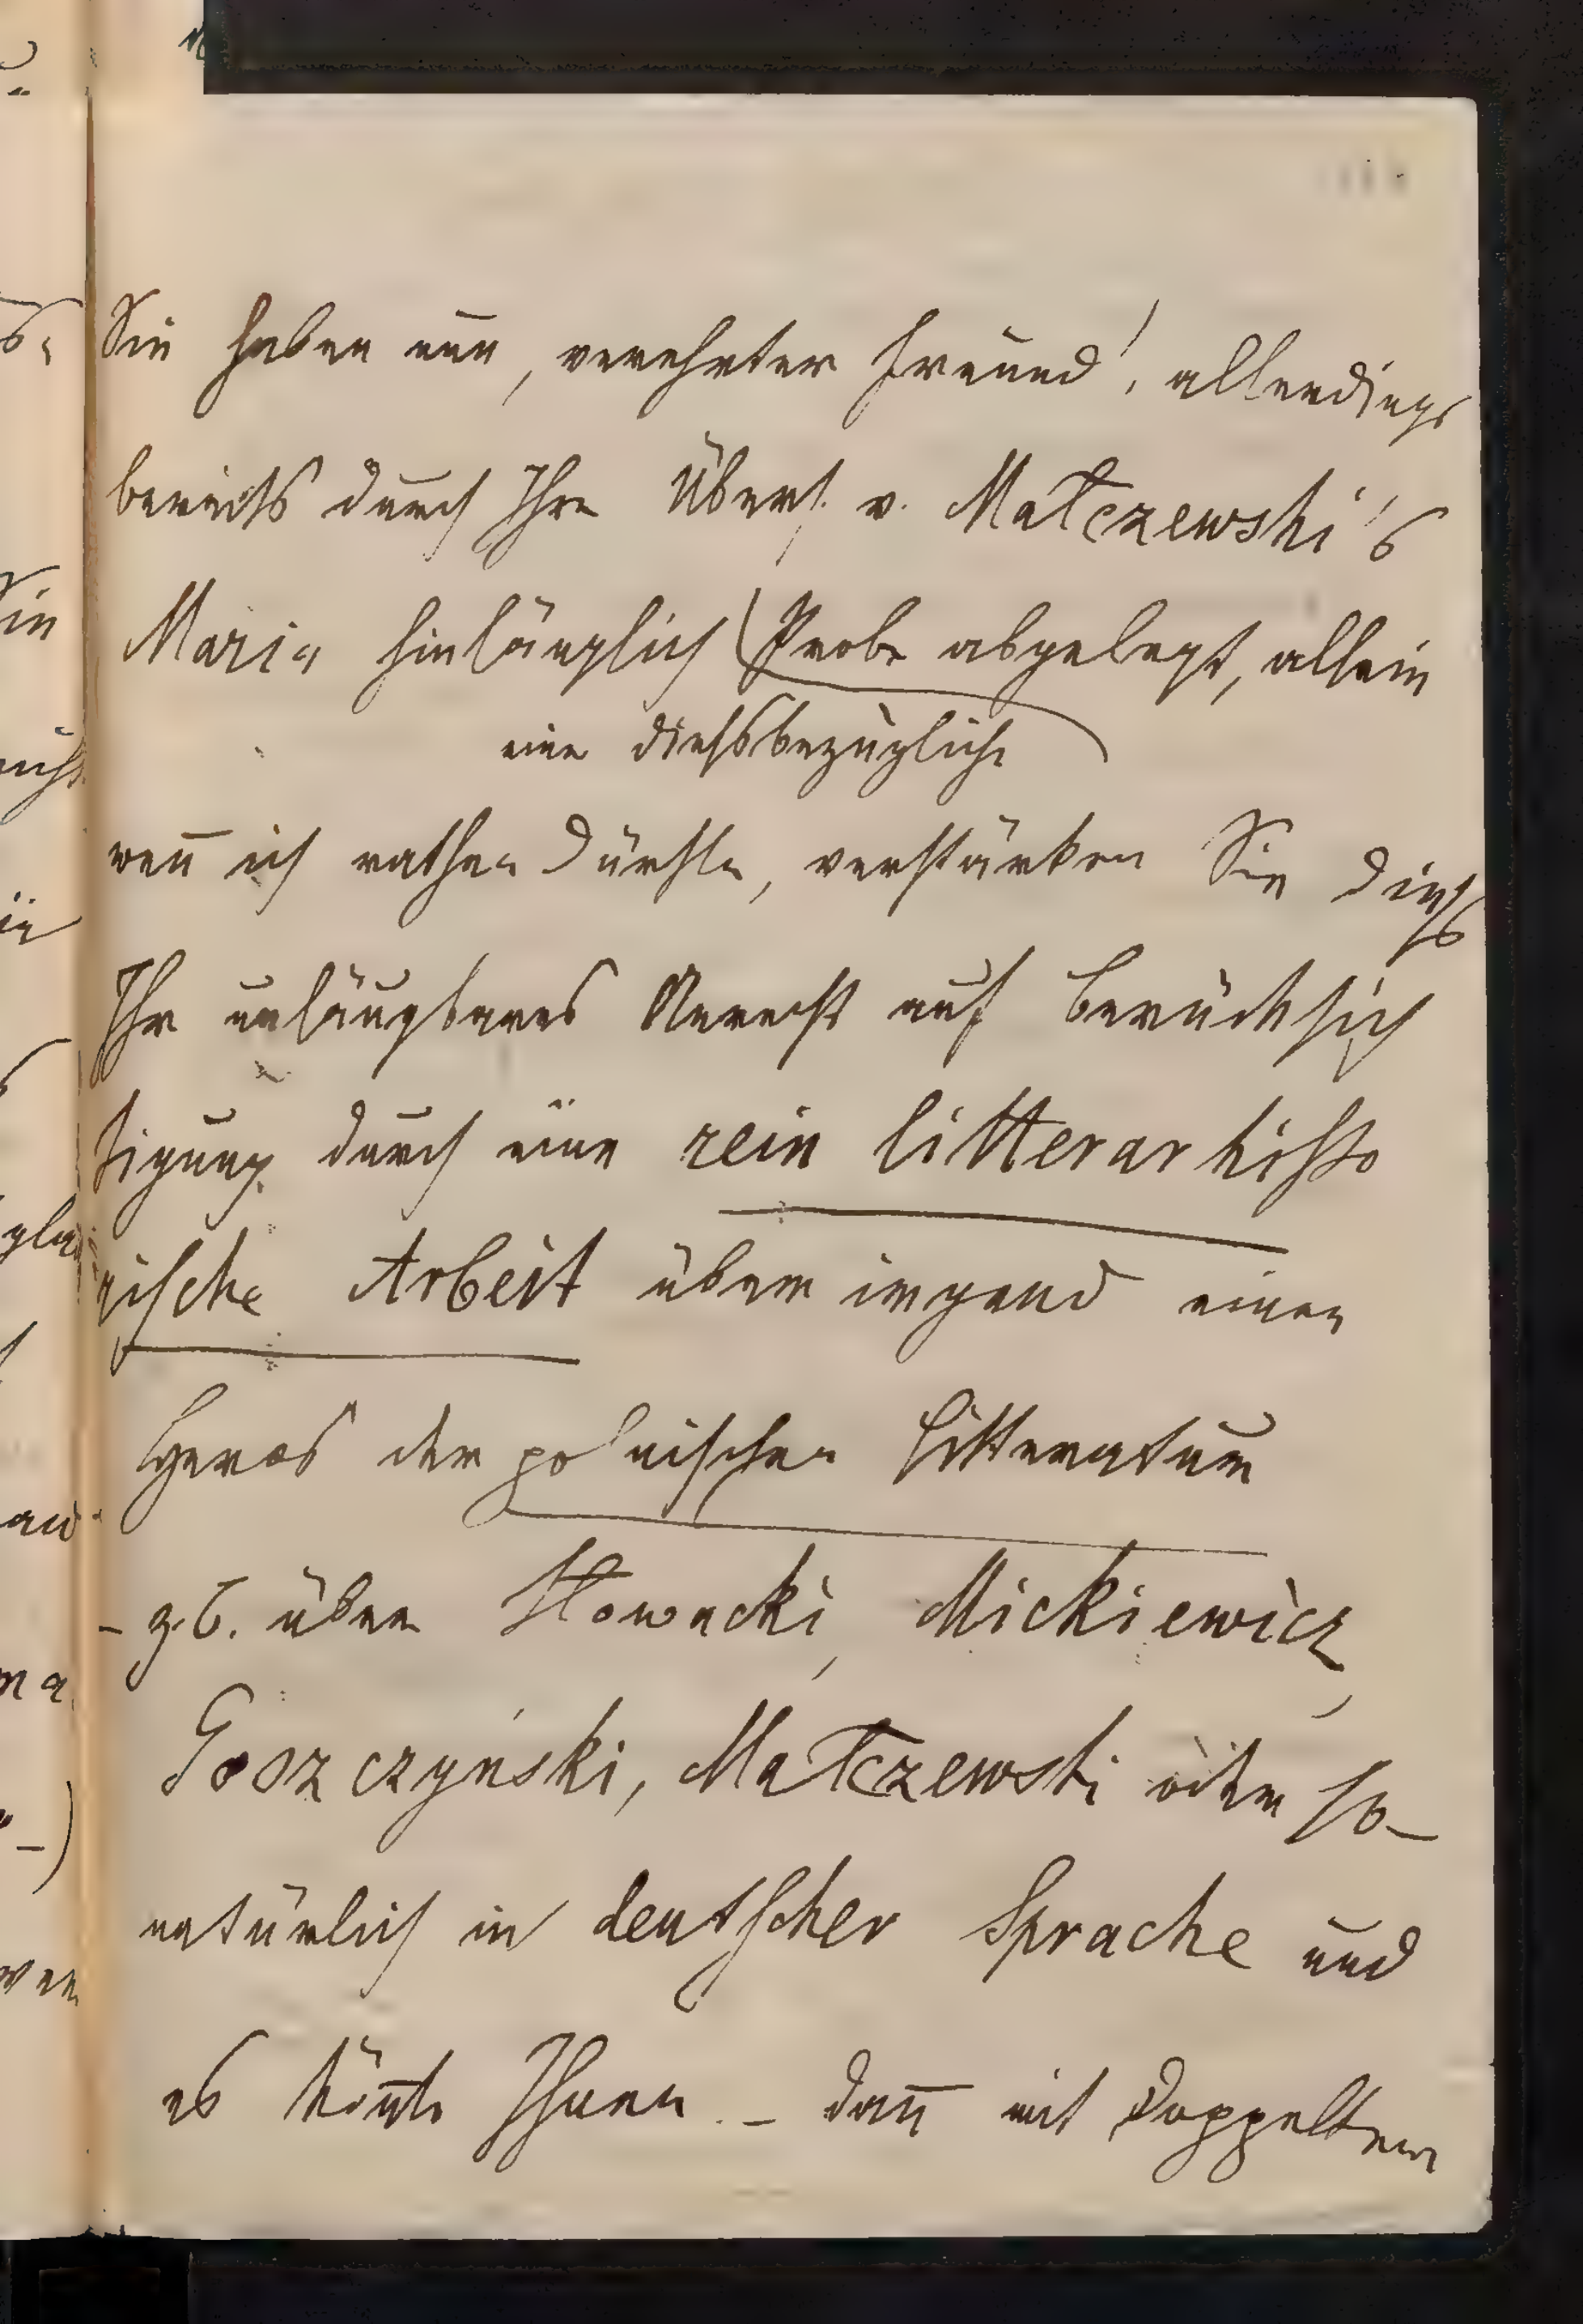 Sie haben nun, verehrter Freund!, allerdings
bereits durch Ihre Übers. v. Małczewski's
Maria hinlänglich Probe abgelegt, allein
eine dießbezügliche
wen̄ ich rathen dürfte, verstärken Sie dieß
Ihr unläugbares Anrecht auf Berücksich
tigung durch eine rein litterarhisto
rische Arbeit über irgend einen
Heros der polnischen Litteratur
– z. B. über Słowacki, Mickiewicz,
Goszczyński, Małczewski oder so –
natürlich in deutscher Sprache und
es kön̄te Ihnen – dan̄ mit doppeltem